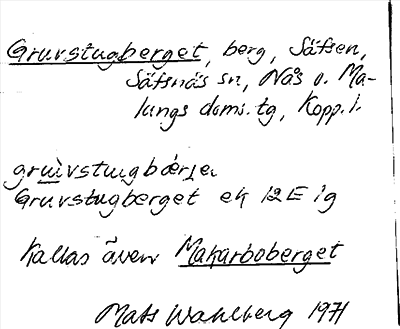 Gruvstugberget, berg, Säfsen,
Säfsnäs sn, Nås o. Ma-
lungs doms.tg, Kopp. l.
Gruvstugberget ek 12E ig
Kallas även Makarboberget
Mats Wahlberg 1971